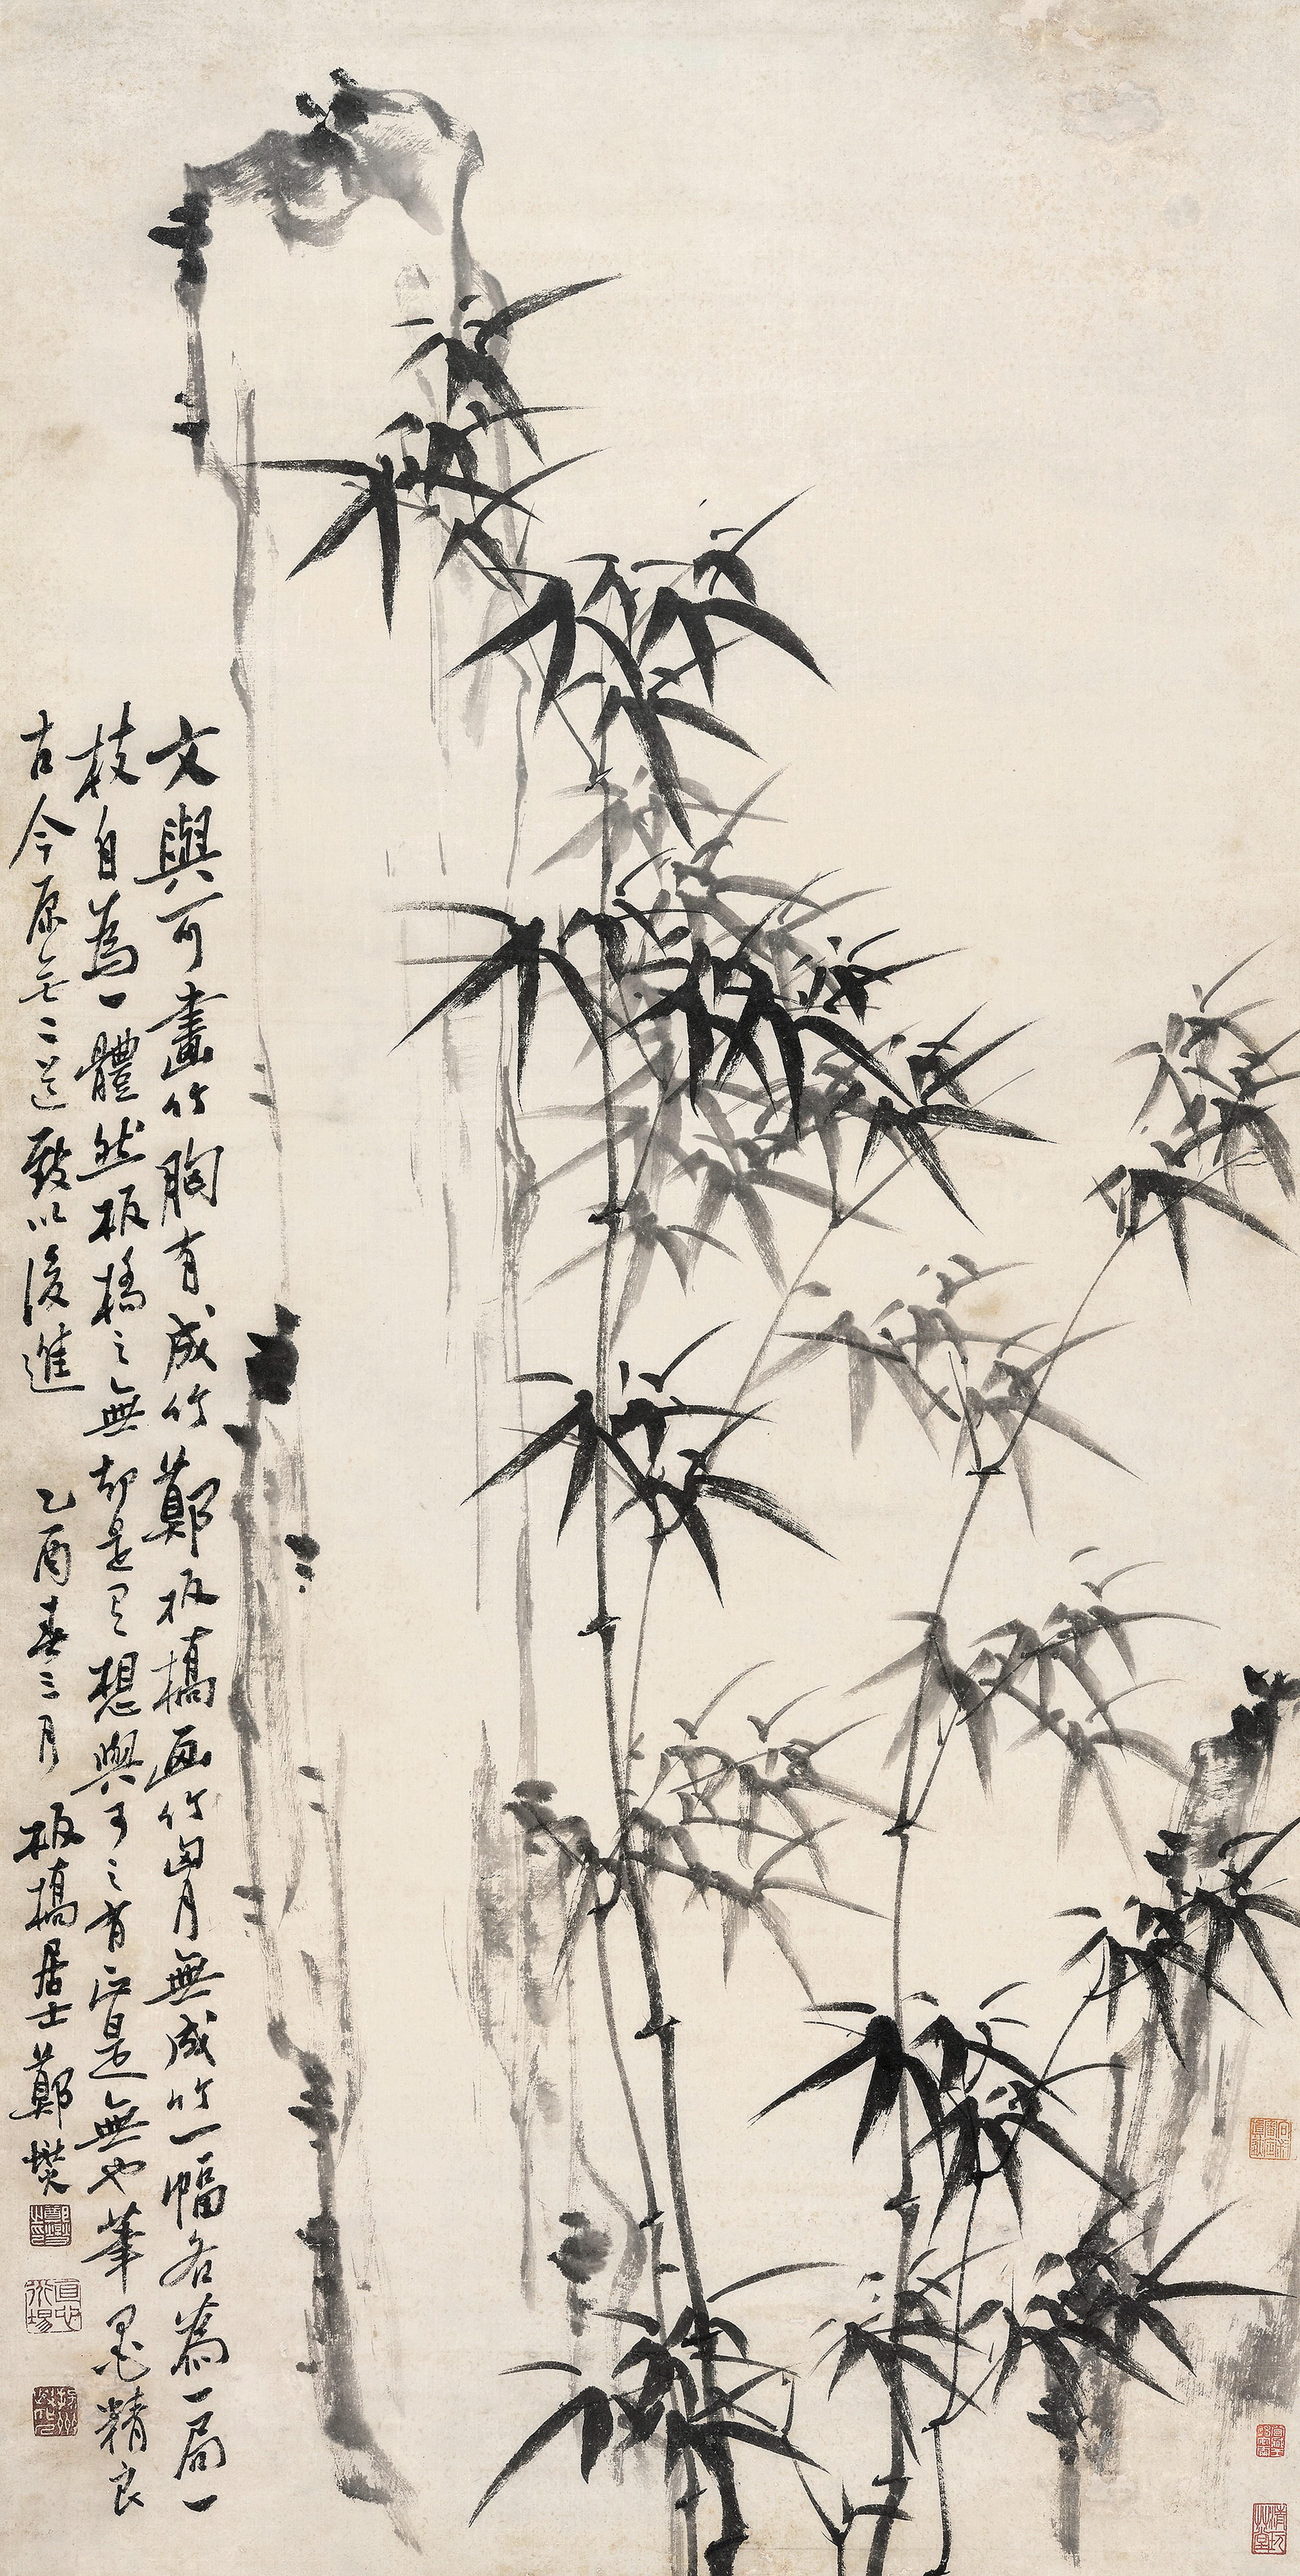 文與可畫竹胸有成竹鄭板橋画竹胷無成竹一幅各為一局一
枝自為一體然板橋之無却是思想與可之有正是無也筆墨精良
古今原無二道敬以後進
乙酉春三月
板橋居士鄭燮